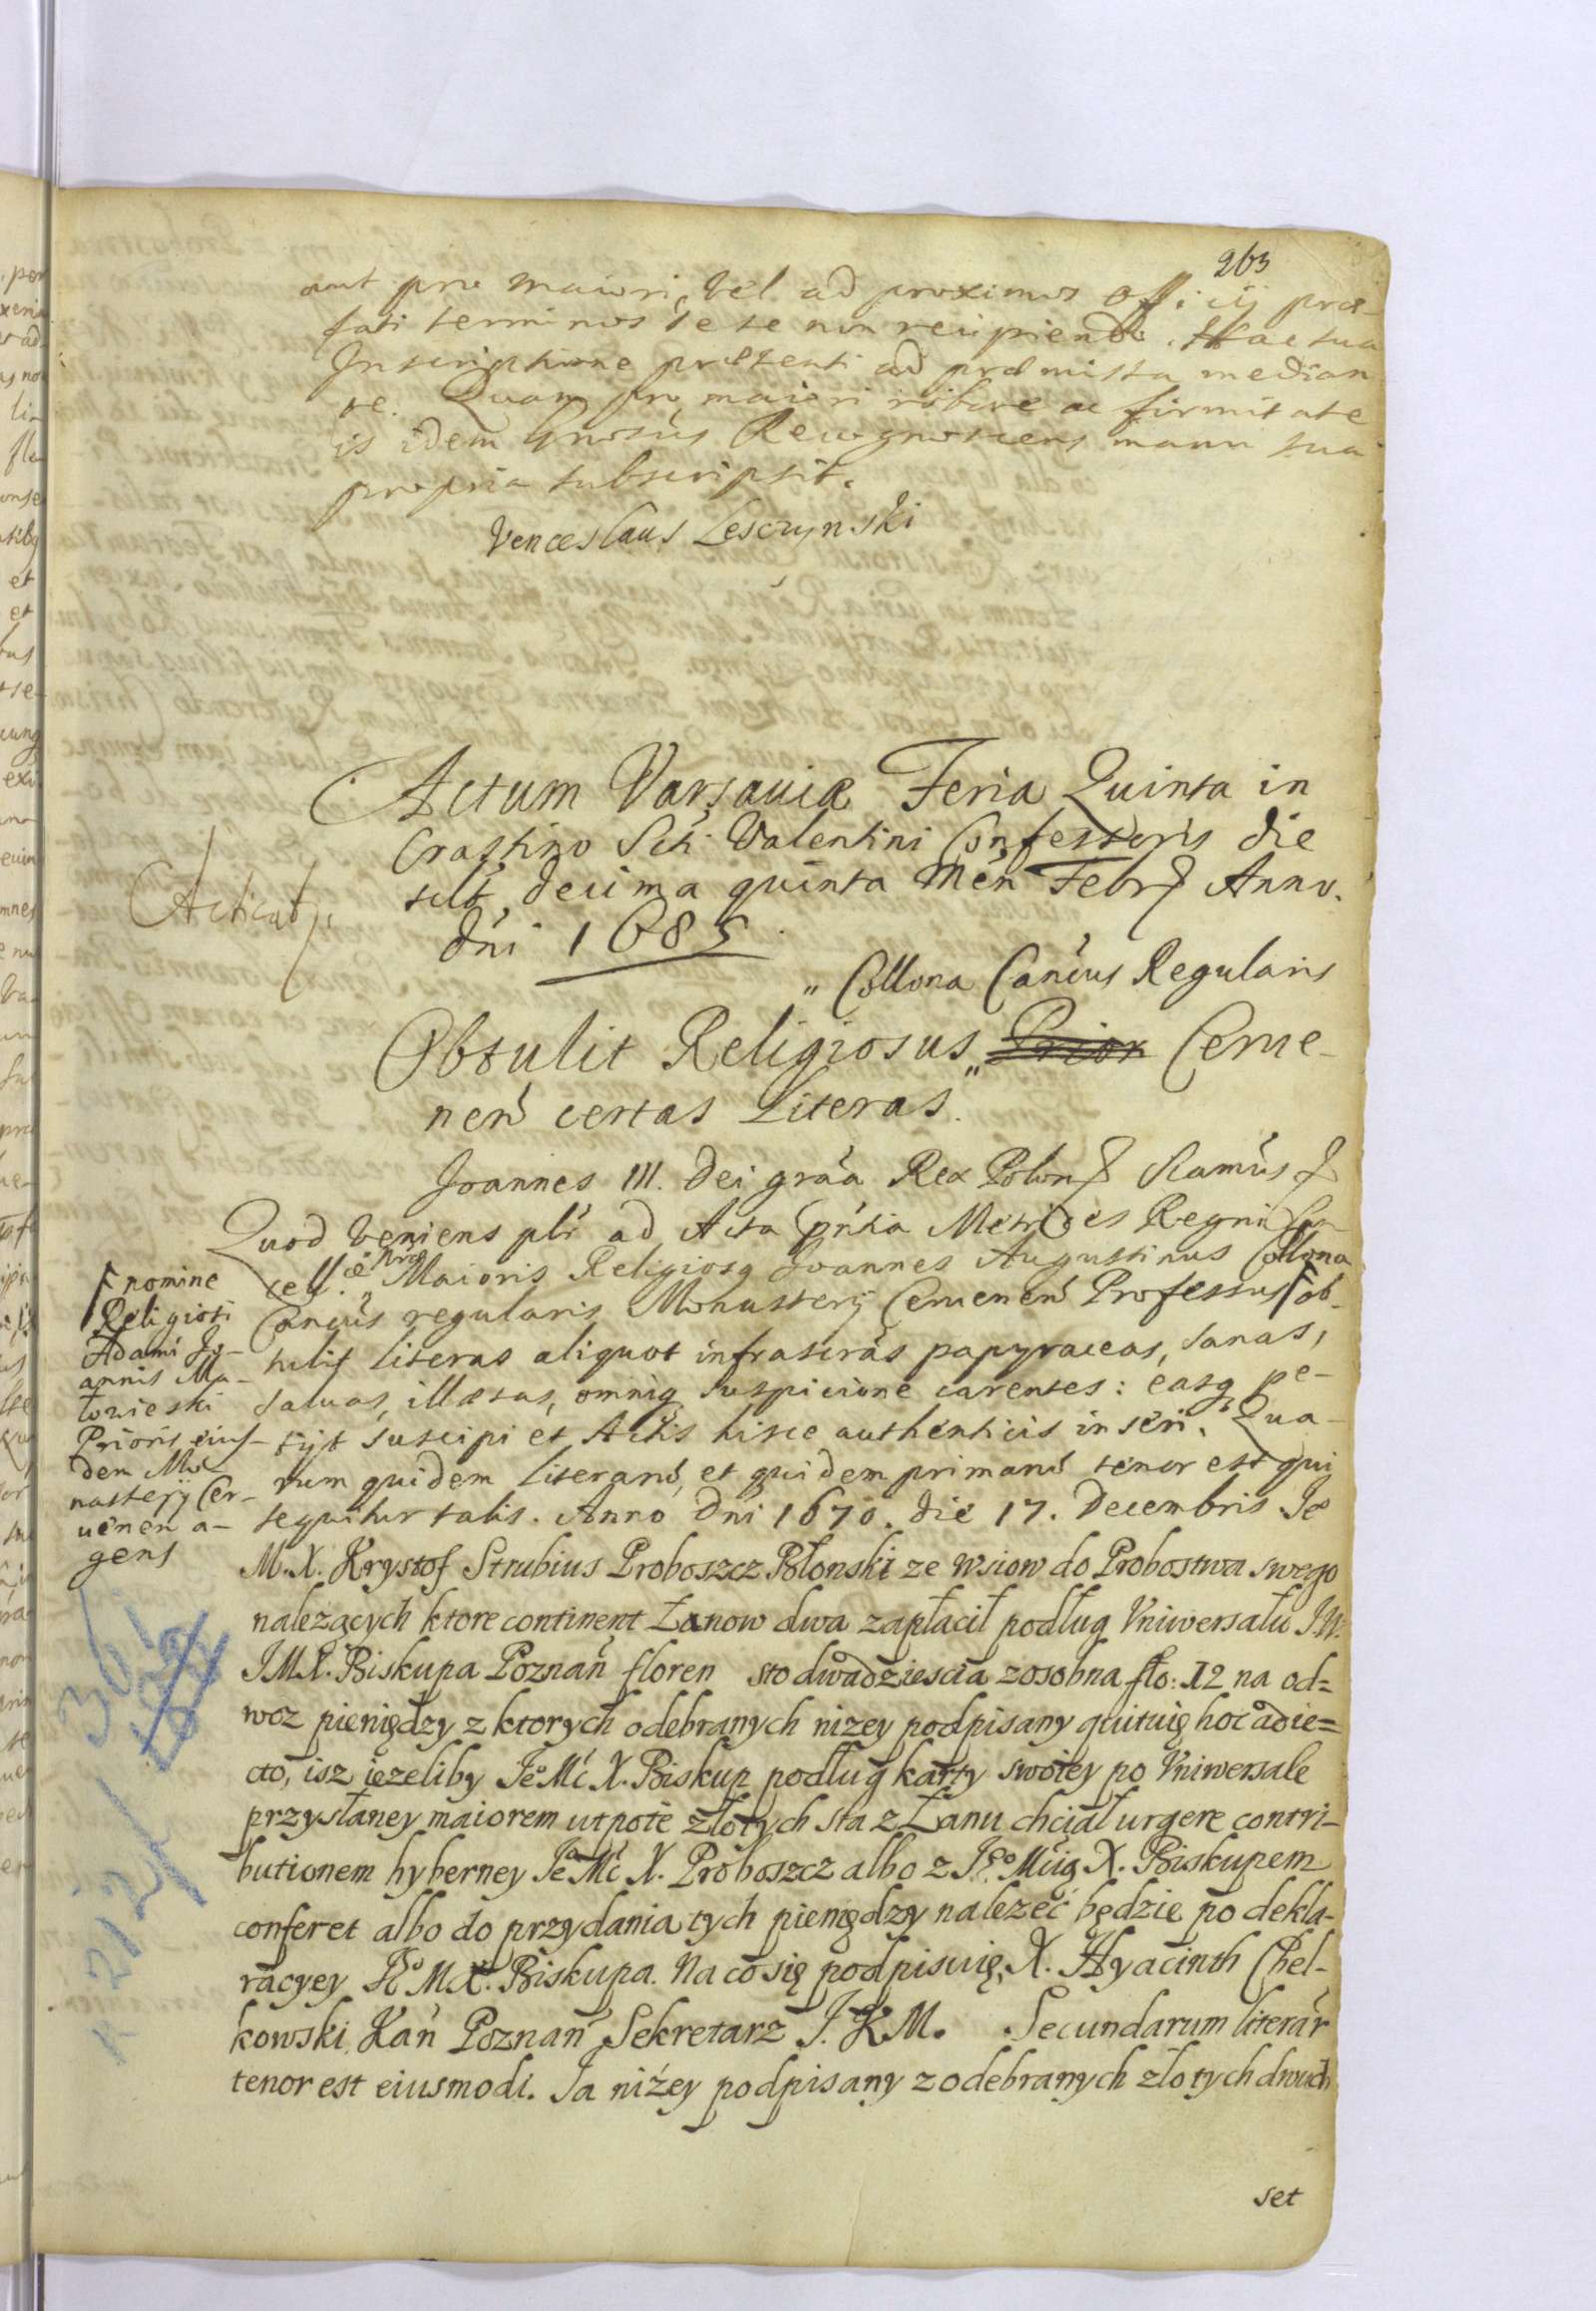 263
aut pro maiori, vel ad proximos Officij præ-
fati terminos de se non recipiendi. Hac sua
Inscriptione præsenti ad præmissa median
te. Quam pro maiori robore ac firmitate
is idem Gnosus Recognoscens manu sua
propria subscripsit.
Venceslaus Lesczynski
Actum Varsaviæ Feria Quinta in
Crastino Scti Valentini Confessoris die
sclt decima quinta Men Febr Anno.
Dni 1685.
Acticat
„ Collona Canĉus Regularis
Obtulit Religiosus „ Prior Cerue-
nen certas Literas.
Joannes III. Dei gra͂a Rex Polon Samus
Quod veniens plr ad Acta prntia Metrices Regni Can
cell. æ Maioris Religiosq Joannes Augustinus Collona
Canĉus regularis Monasterij Ceruenen Professus ob-
tulit literas aliquot infrascras papyraceas, sanas,
saluas, illæsas, omniq suspicione carentes: easq pe-
tijt suscipi et Actis hisce authenticis inseri. Qua-
rum quidem Literarum, et quidem primarum tenor est qui
sequitur talis. Anno Dni 1670. die 17. Decembris Je
nomine
Religiosi
Adami Jo-
annis Ma-
lowieski
Prioris eius-
dem Mo-
nasterij Cer-
uenen a-
gens
M. X. Krystof Strubius Proboszcz Płonski ze wsiow do Probostwa swego
nalezących ktore continent Łanow dwa zapłacił podług Vniwersału J.W.
J.M.X. Biskupa Poznan floren sto dwadziescia zosobna flo: 12 na od=
woz pieniędzy z ktorych odebranych nizey podpisany quituię hoc adie=
cto, isz iezeliby JeoMć X. Biskup podług karty swoiey po Vniwersale
przysłaney maiorem utpote złotych sta z Łanu chciał urgere contri-
butionem hyberney JeoMć X. Proboszcz albo z Jeo Mcią X. Biskupem
conferet albo do przydania tych pieniędzy nalezeć będzie po dekla-
racyey Jeo M X. Biskupa. Na co się podpisuię. X. Hyacinth Chel-
kowski Kan Poznan Sekretarz J. K M. Secundarum literar
tenor est eiusmodi. Ja niżey podpisany z odebranych złotych dwuch
set